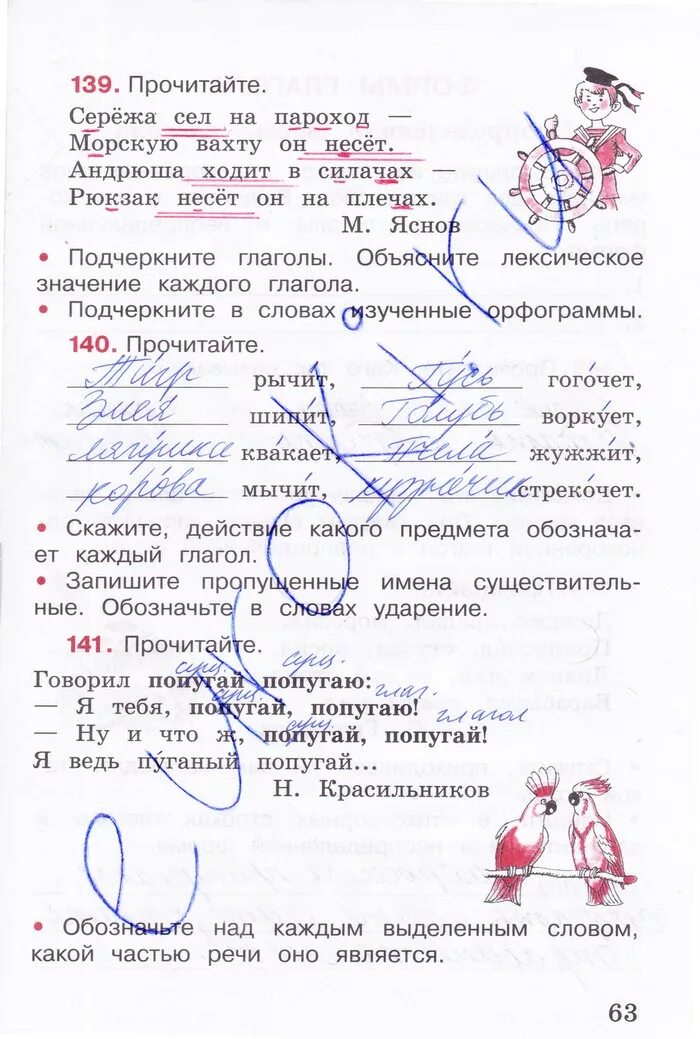 139. Прочитайте.
Серёжа сел на пароход —
Морскую вахту он несёт.
Андрюша ходит в силачах —
Рюкзак несёт он на плечах.
М. Яснов
• Подчеркните глаголы. Объясните лексическое
значение каждого глагола.
• Подчеркните в словах изученные орфограммы.
140. Прочитайте.
Тигр рычит, Гусь гогочет,
Змея шипит, Голубь воркует,
лягушка квакает, Пчела жужжит,
корова мычит, кузнечик стрекочет.
• Скажите, действие какого предмета обознача-
ет каждый глагол.
• Запишите пропущенные имена существитель-
ные. Обозначьте в словах ударение.
141. Прочитайте.
сущ. сущ.
Говорил попугай попугаю:
сущ. глаг.
— Я тебя, попугай, попугаю!
сущ. глагол
— Ну и что ж, попугай, попугай!
сущ.
Я ведь пуганый попугай...
Н. Красильников
• Обозначьте над каждым выделенным словом,
какой частью речи оно является.
63